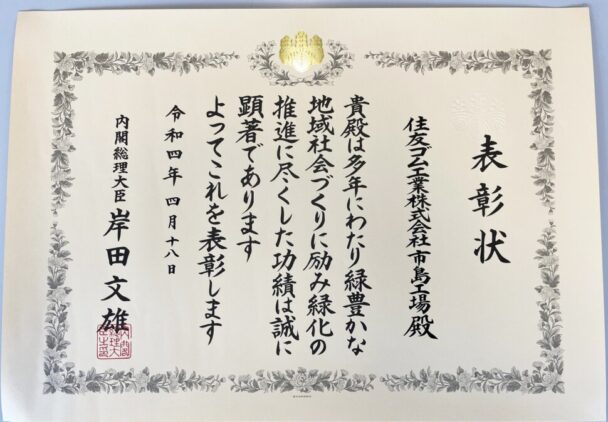 表彰状
住友ゴム工業株式会社 市島工場殿
貴殿は多年にわたり緑豊かな
地域社会づくりに励み緑化の
推進に尽くした功績は誠に
顕著であります
よってこれを表彰します
令和四年四月十八日
内閣総理大臣 岸田文雄